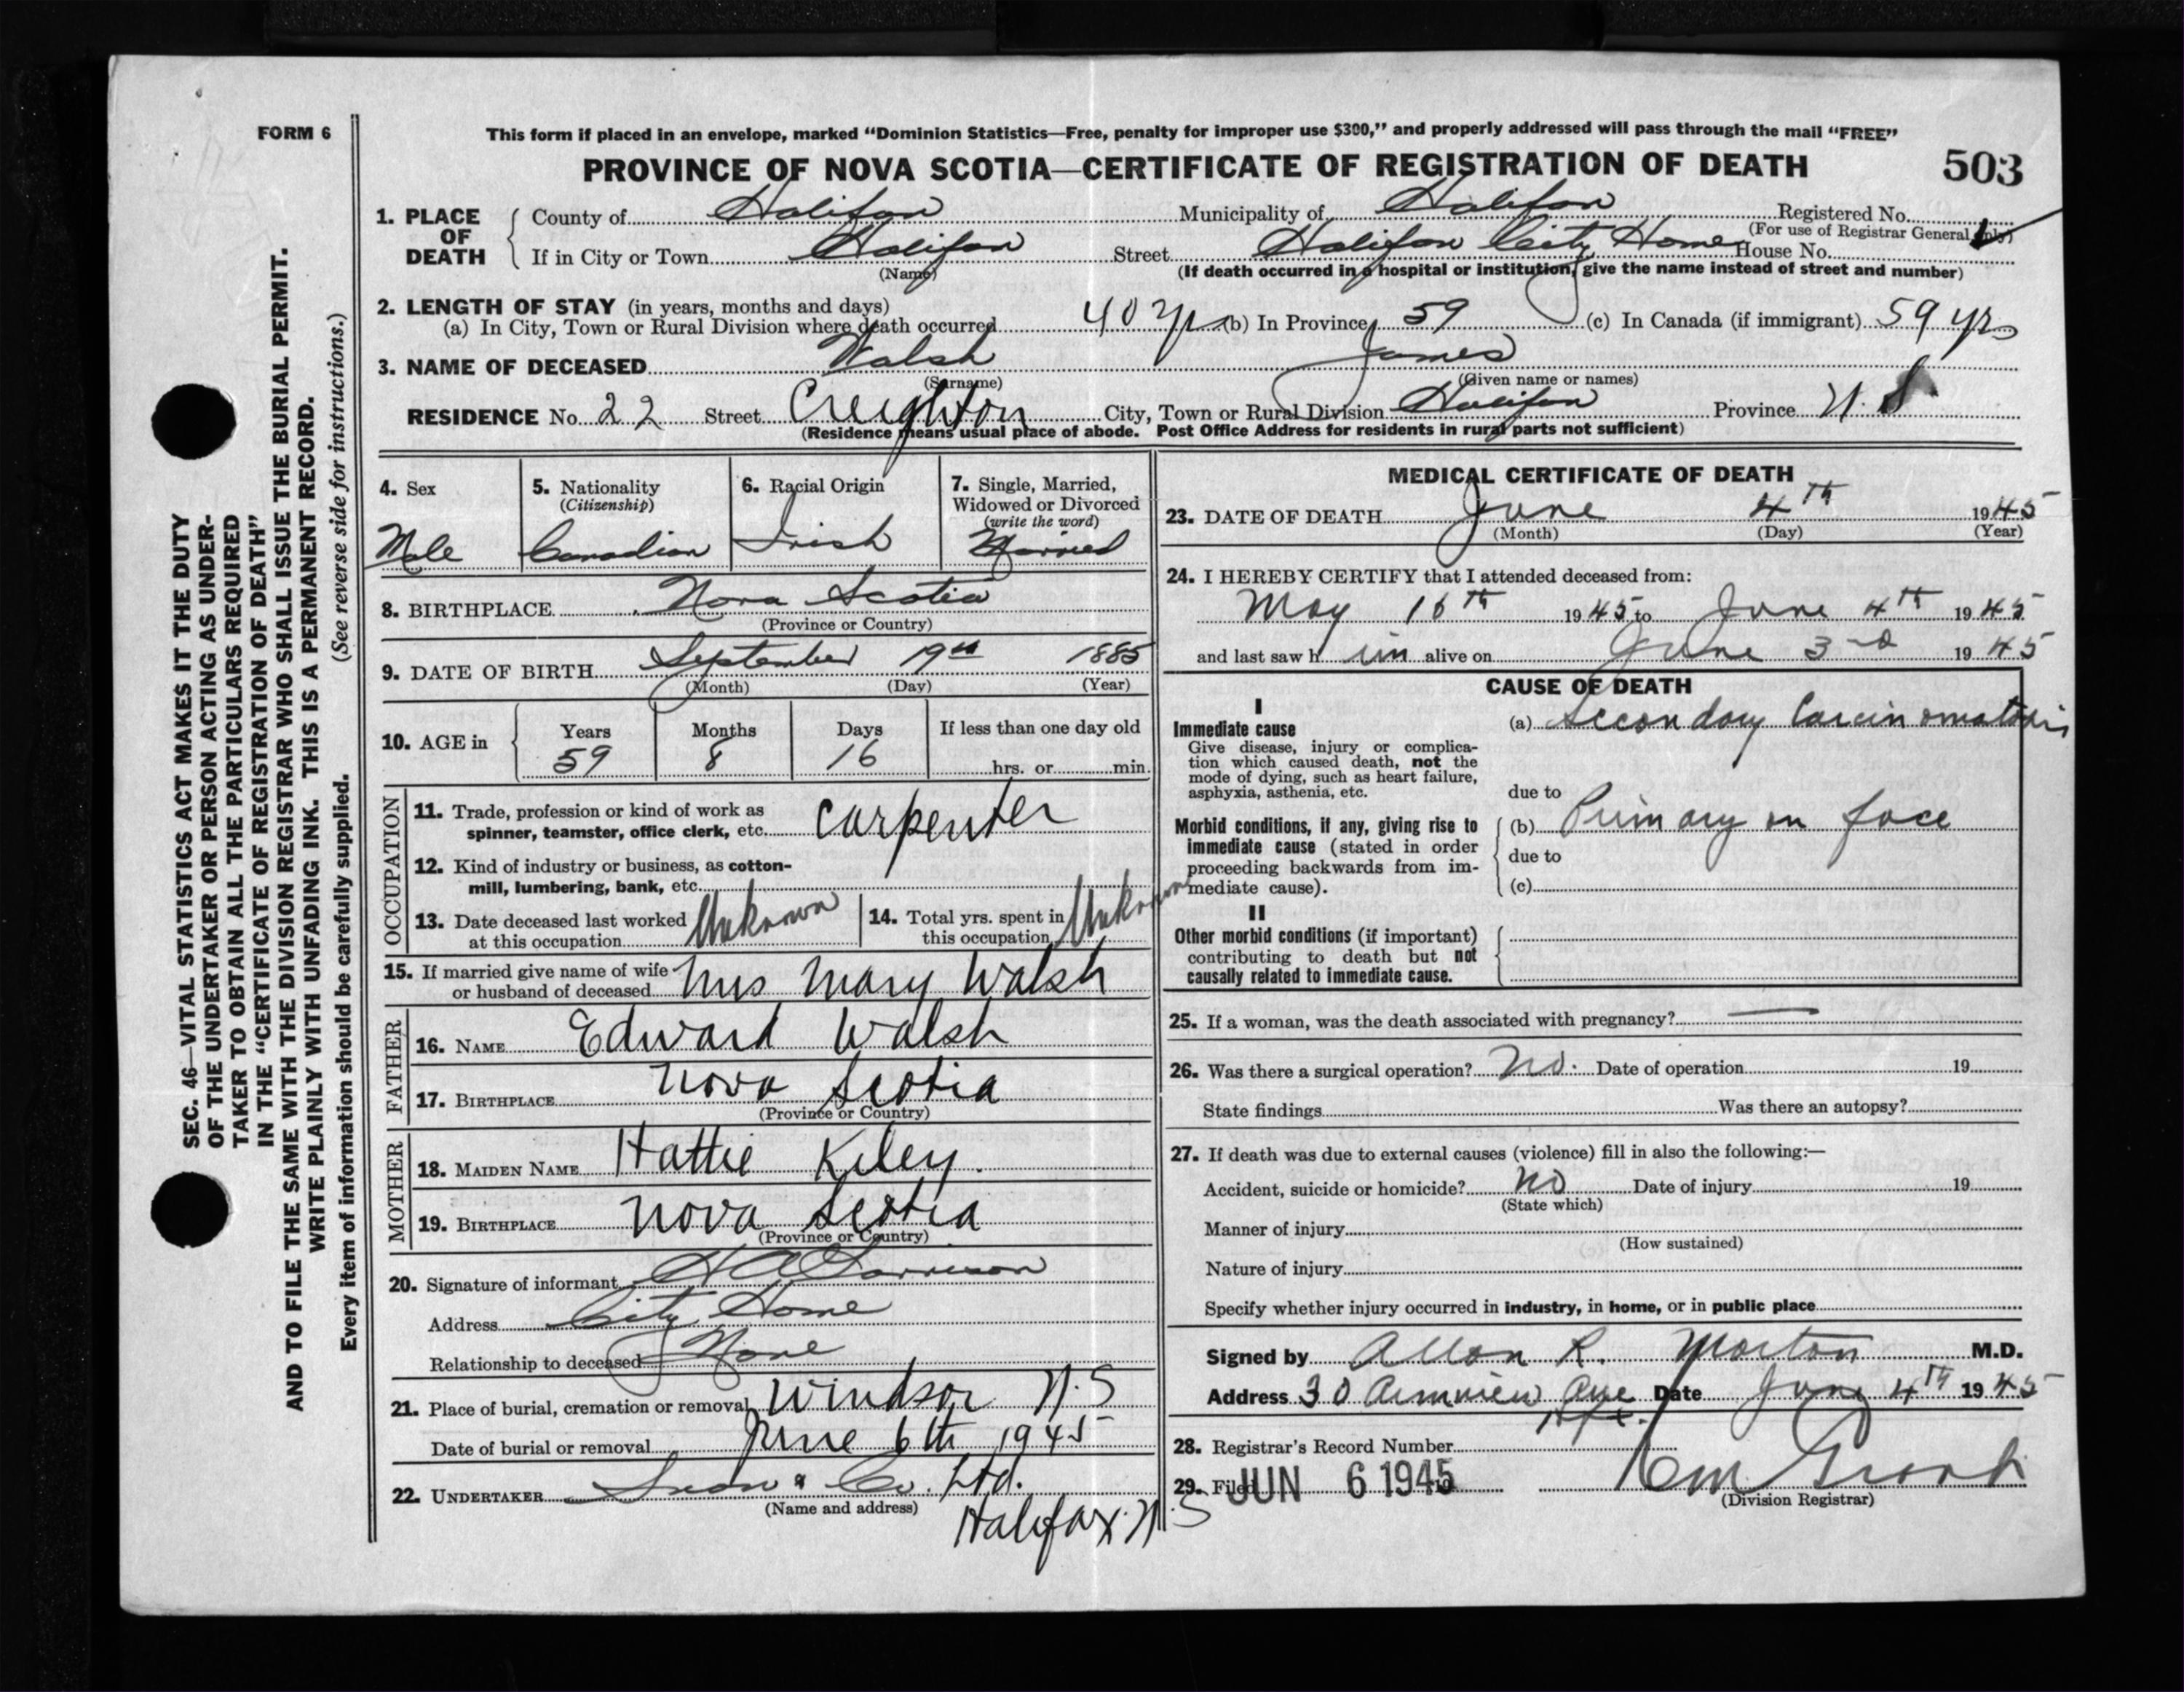 FORM 6
This form if placed in an envelope, marked “Dominion Statistics—Free, penalty for improper use $300,” and properly addressed will pass through the mail “FREE”
PROVINCE OF NOVA SCOTIA—CERTIFICATE OF REGISTRATION OF DEATH 503
1. PLACE OF DEATH
County of Halifax Municipality of Halifax Registered No.
(For use of Registrar General only)
If in City or Town Halifax Street Halifax City Home House No.
(Name) (If death occurred in a hospital or institution, give the name instead of street and number)
2. LENGTH OF STAY (in years, months and days)
(a) In City, Town or Rural Division where death occurred 40 yr (b) In Province 59 (c) In Canada (if immigrant) 59 yrs
3. NAME OF DECEASED Walsh James
(Surname) (Given name or names)
RESIDENCE No. 22 Street Creighton City, Town or Rural Division Halifax Province N.S
(Residence means usual place of abode. Post Office Address for residents in rural parts not sufficient)
4. Sex
Male
5. Nationality
(Citizenship)
Canadian
6. Racial Origin
Irish
7. Single, Married,
Widowed or Divorced
(write the word)
Married
8. BIRTHPLACE Nova Scotia
(Province or Country)
9. DATE OF BIRTH September 19th 1885
(Month) (Day) (Year)
10. AGE in
Years Months Days If less than one day old
59 8 16 hrs. or min.
OCCUPATION
11. Trade, profession or kind of work as
spinner, teamster, office clerk, etc. Carpenter
12. Kind of industry or business, as cotton-
mill, lumbering, bank, etc.
13. Date deceased last worked
at this occupation Unknown
14. Total yrs. spent in
this occupation Unknown
15. If married give name of wife
or husband of deceased Mrs Mary Walsh
FATHER
16. NAME Edward Walsh
17. BIRTHPLACE Nova Scotia
(Province or Country)
MOTHER
18. MAIDEN NAME Hattie Kiley.
19. BIRTHPLACE Nova Scotia
(Province or Country)
20. Signature of informant
Address City Home
Relationship to deceased None
21. Place of burial, cremation or removal Windsor N.S
Date of burial or removal June 6th 1945
22. UNDERTAKER Snow & Co. Ltd.
(Name and address)
Halifax N.S
MEDICAL CERTIFICATE OF DEATH
23. DATE OF DEATH June 4th 1945
(Month) (Day) (Year)
24. I HEREBY CERTIFY that I attended deceased from:
May 16th 1945 to June 4th 1945
and last saw him alive on June 3rd 1945
CAUSE OF DEATH
I
Immediate cause
Give disease, injury or complica-
tion which caused death, not the
mode of dying, such as heart failure,
asphyxia, asthenia, etc.
(a) Secondary Carcinomatosis
due to
Morbid conditions, if any, giving rise to
immediate cause (stated in order
proceeding backwards from im-
mediate cause).
(b) Primary on face
due to
(c)
II
Other morbid conditions (if important)
contributing to death but not
causally related to immediate cause.
25. If a woman, was the death associated with pregnancy? —
26. Was there a surgical operation? No. Date of operation 19
State findings Was there an autopsy?
27. If death was due to external causes (violence) fill in also the following:—
Accident, suicide or homicide? No Date of injury 19
(State which)
Manner of injury
(How sustained)
Nature of injury
Specify whether injury occurred in industry, in home, or in public place
Signed by Allan R. Morton M.D.
Address 30 Armview Ave Date June 4th 1945
Hfx.
28. Registrar's Record Number
29. Filed JUN 6 1945
(Division Registrar)
SEC. 46—VITAL STATISTICS ACT MAKES IT THE DUTY
OF THE UNDERTAKER OR PERSON ACTING AS UNDER-
TAKER TO OBTAIN ALL THE PARTICULARS REQUIRED
IN THE “CERTIFICATE OF REGISTRATION OF DEATH”
AND TO FILE THE SAME WITH THE DIVISION REGISTRAR WHO SHALL ISSUE THE BURIAL PERMIT.
WRITE PLAINLY WITH UNFADING INK. THIS IS A PERMANENT RECORD.
Every item of information should be carefully supplied. (See reverse side for instructions.)